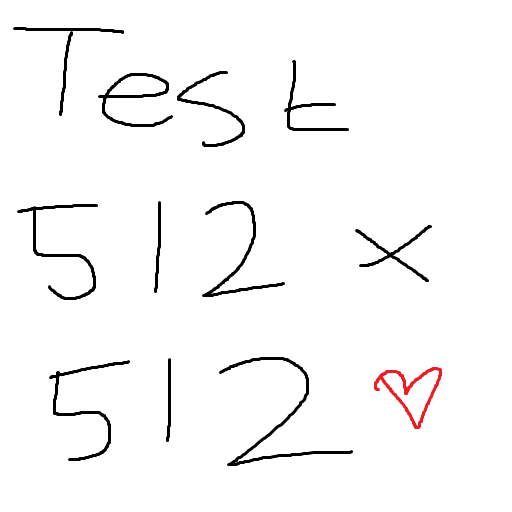 Test
512 x
512 ♡